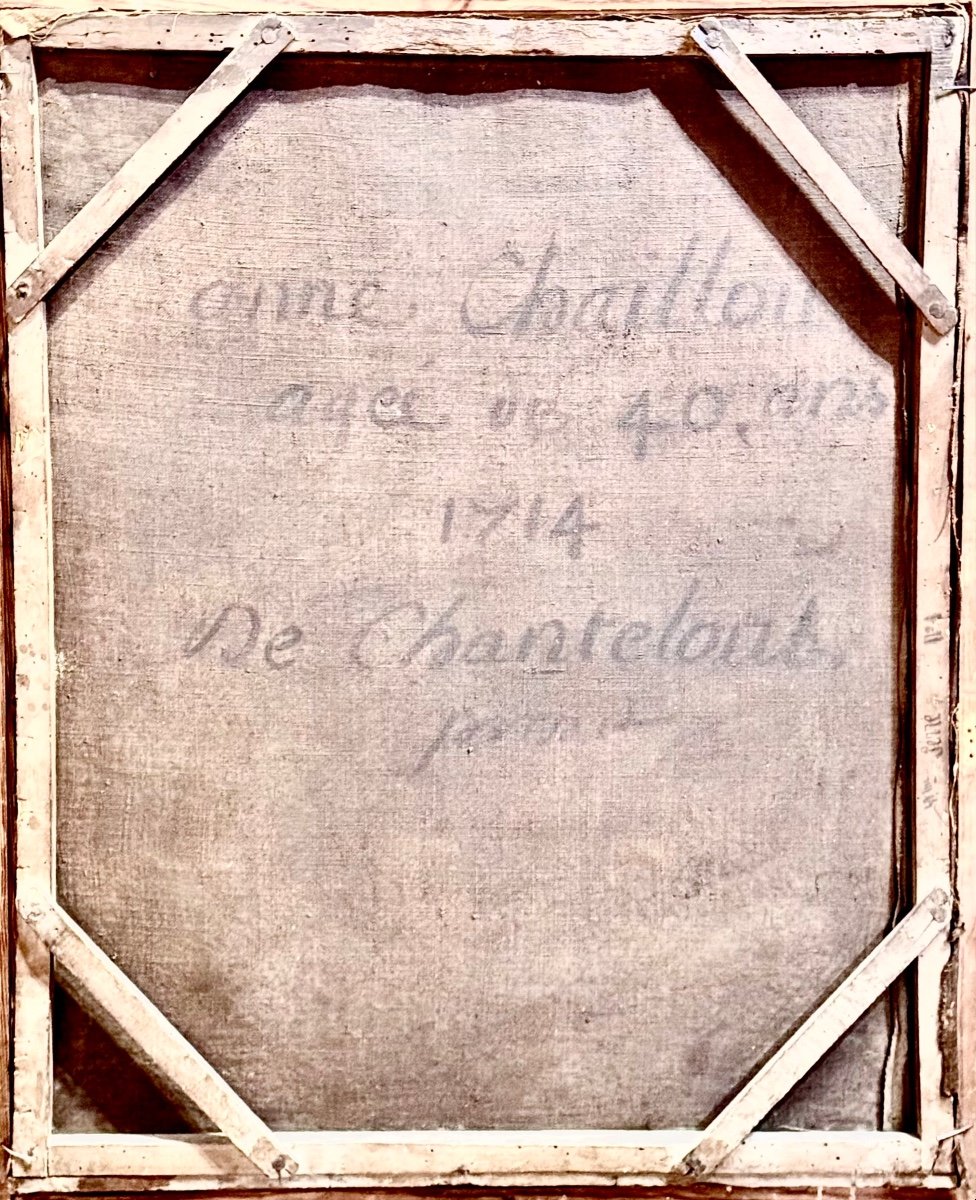 anne Chaillou
ageé de 40. ans
1714
De Chantelou
pinxit